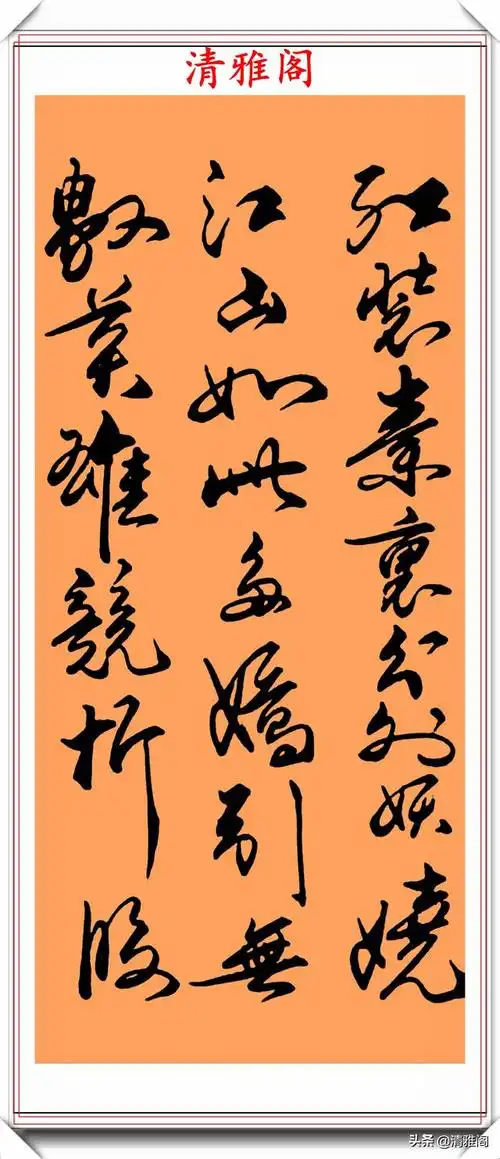 清雅阁
红装素裹分外妖娆
江山如此多娇引無
數英雄競折腰
头条@清雅阁